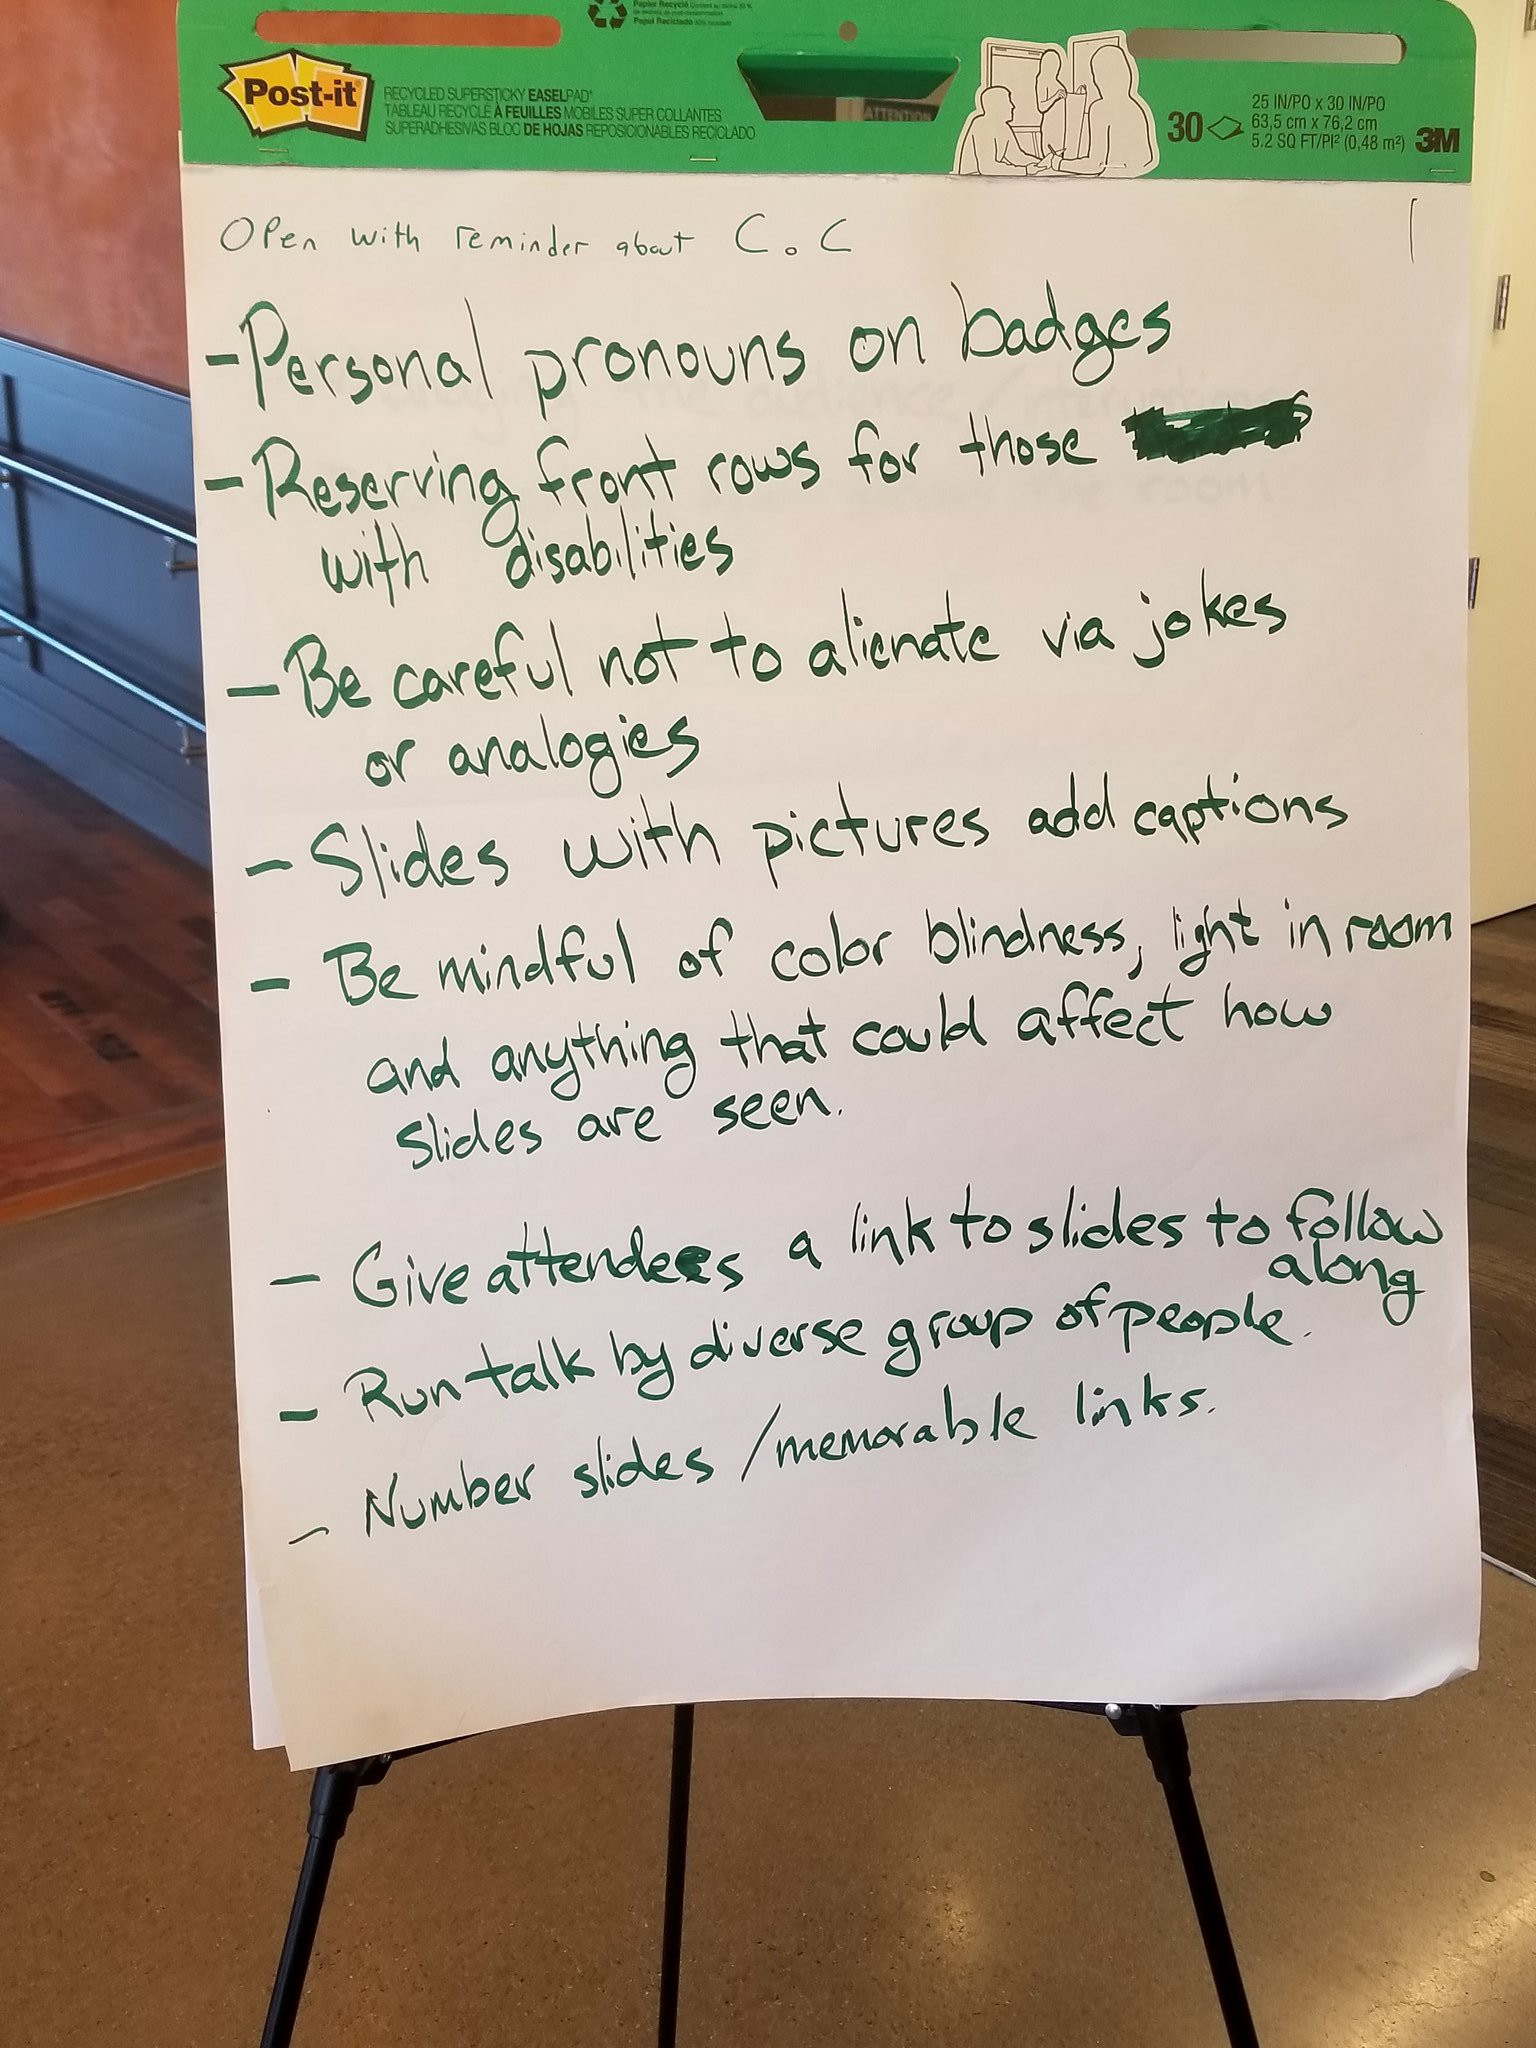 Papier Recyclé
Papel Reciclado
Post-it
RECYCLED SUPERSTICKY EASELPAD
TABLEAU RECYCLÉ À FEUILLES MOBILES SUPER COLLANTES
SUPERADHESIVAS BLOC DE HOJAS REPOSICIONABLES RECICLADO
ATTENTION
30
25 IN/PO x 30 IN/PO
63,5 cm x 76,2 cm
5.2 SQ FT/PI² (0,48 m²)
3M
Open with reminder about C.o.C
1
- Personal pronouns on badges
- Reserving front rows for those
with disabilities
- Be careful not to alienate via jokes
or analogies
- Slides with pictures add captions
- Be mindful of color blindness, light in room
and anything that could affect how
slides are seen.
- Give attendees a link to slides to follow
along
- Run talk by diverse group of people.
- Number slides / memorable links.